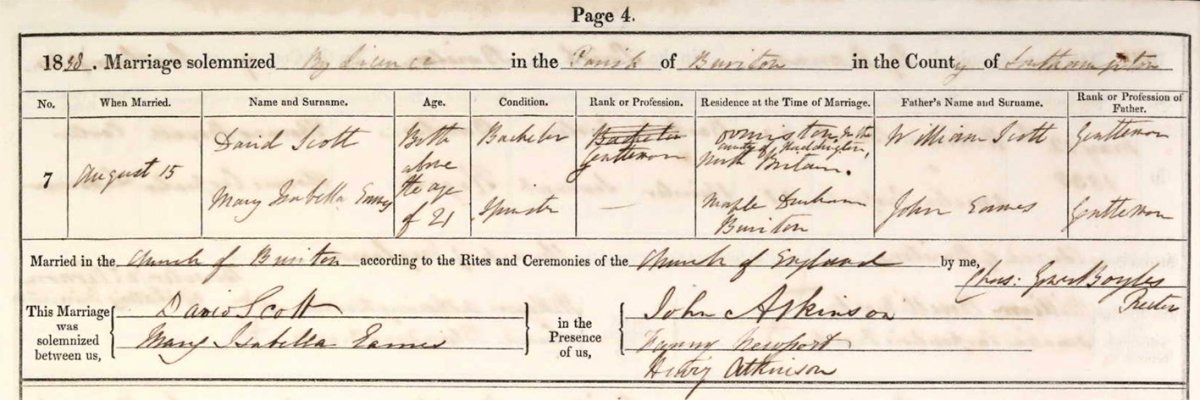 Page 4.
1838. Marriage solemnized By Licence in the Parish of Buriton in the County of Southampton
No. When Married. Name and Surname. Age. Condition. Rank or Profession. Residence at the Time of Marriage. Father's Name and Surname. Rank or Profession of Father.
7 August 15 David Scott Both above the age of 21 Bachelor Bachelor Gentleman Ormiston in the County of Haddington, North Britain. William Scott Gentleman
Mary Isabella Eames Spinster — Maple Durham Buriton John Eames Gentleman
Married in the Church of Buriton according to the Rites and Ceremonies of the Church of England by me,
Chas: Boyles Rector
This Marriage was solemnized between us,
David Scott
Mary Isabella Eames
in the Presence of us,
John Atkinson
Fanny Newport
Henry Atkinson